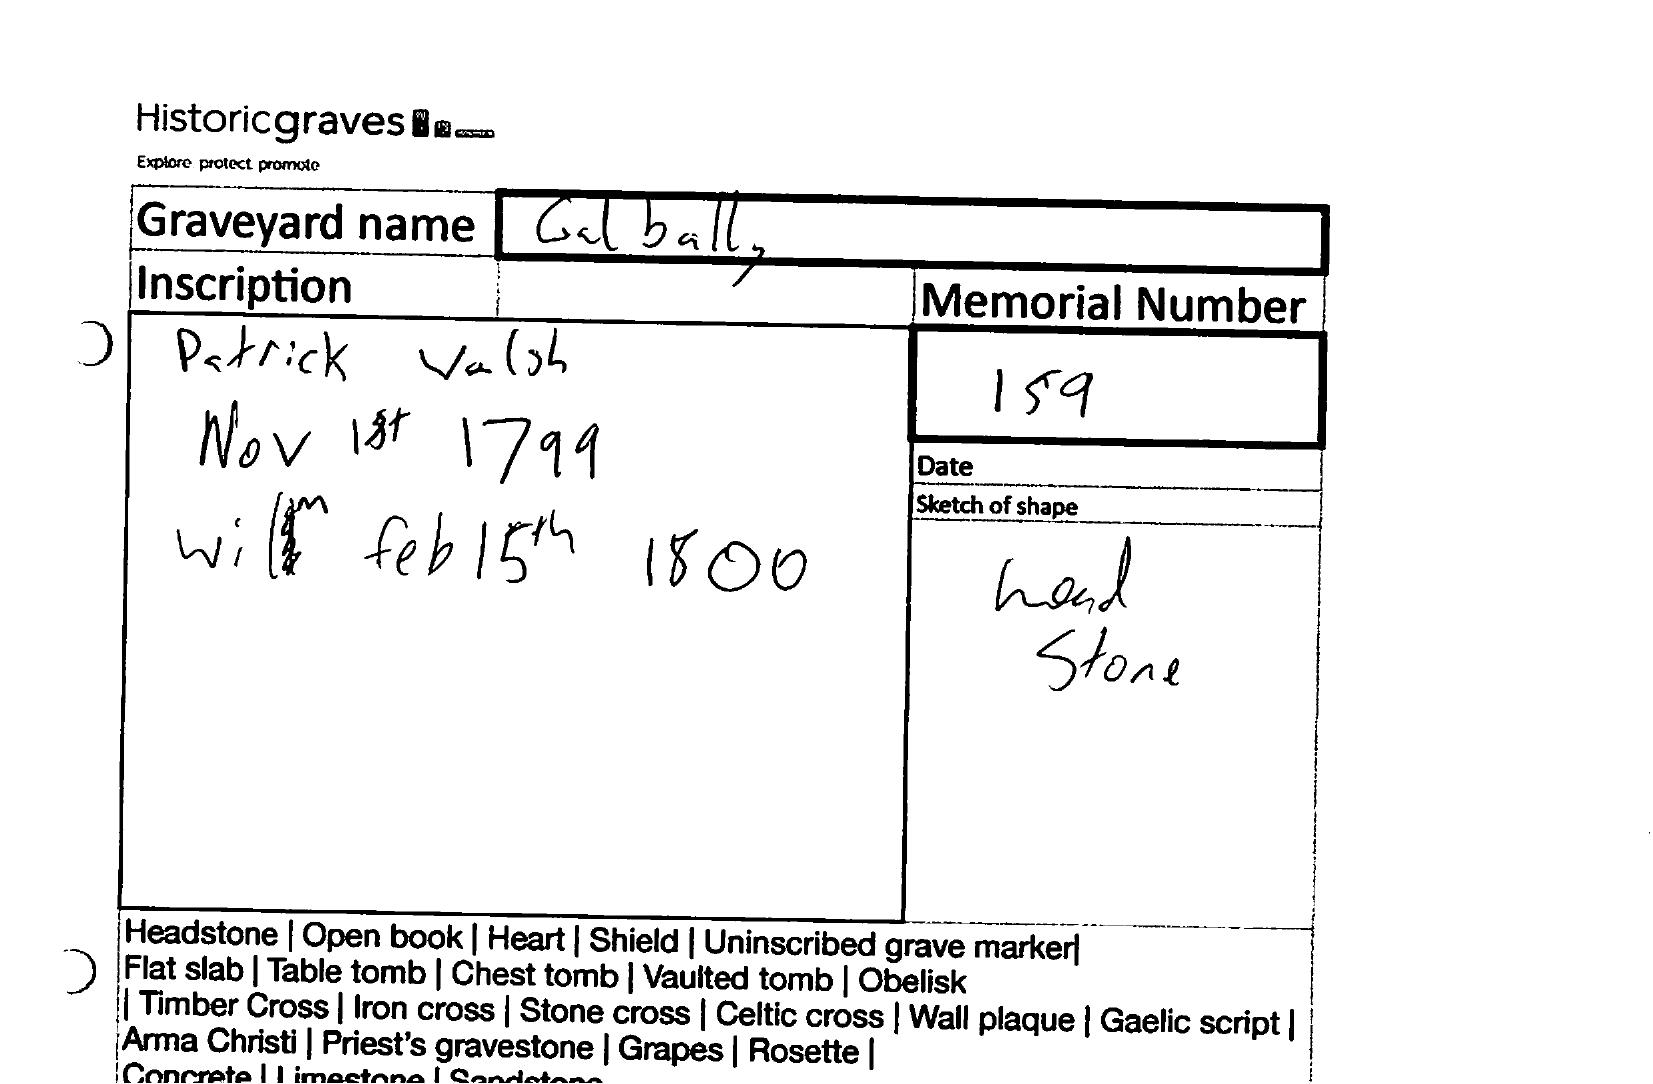 Historicgraves
Explore protect promote
Graveyard name Galbally
Inscription
Memorial Number
Patrick Walsh
Nov 1st 1799
Will^m feb 15th 1800
159
Date
Sketch of shape
head
Stone
Headstone | Open book | Heart | Shield | Uninscribed grave marker|
Flat slab | Table tomb | Chest tomb | Vaulted tomb | Obelisk
| Timber Cross | Iron cross | Stone cross | Celtic cross | Wall plaque | Gaelic script |
Arma Christi | Priest's gravestone | Grapes | Rosette |
Concrete | Limestone | Sandstone